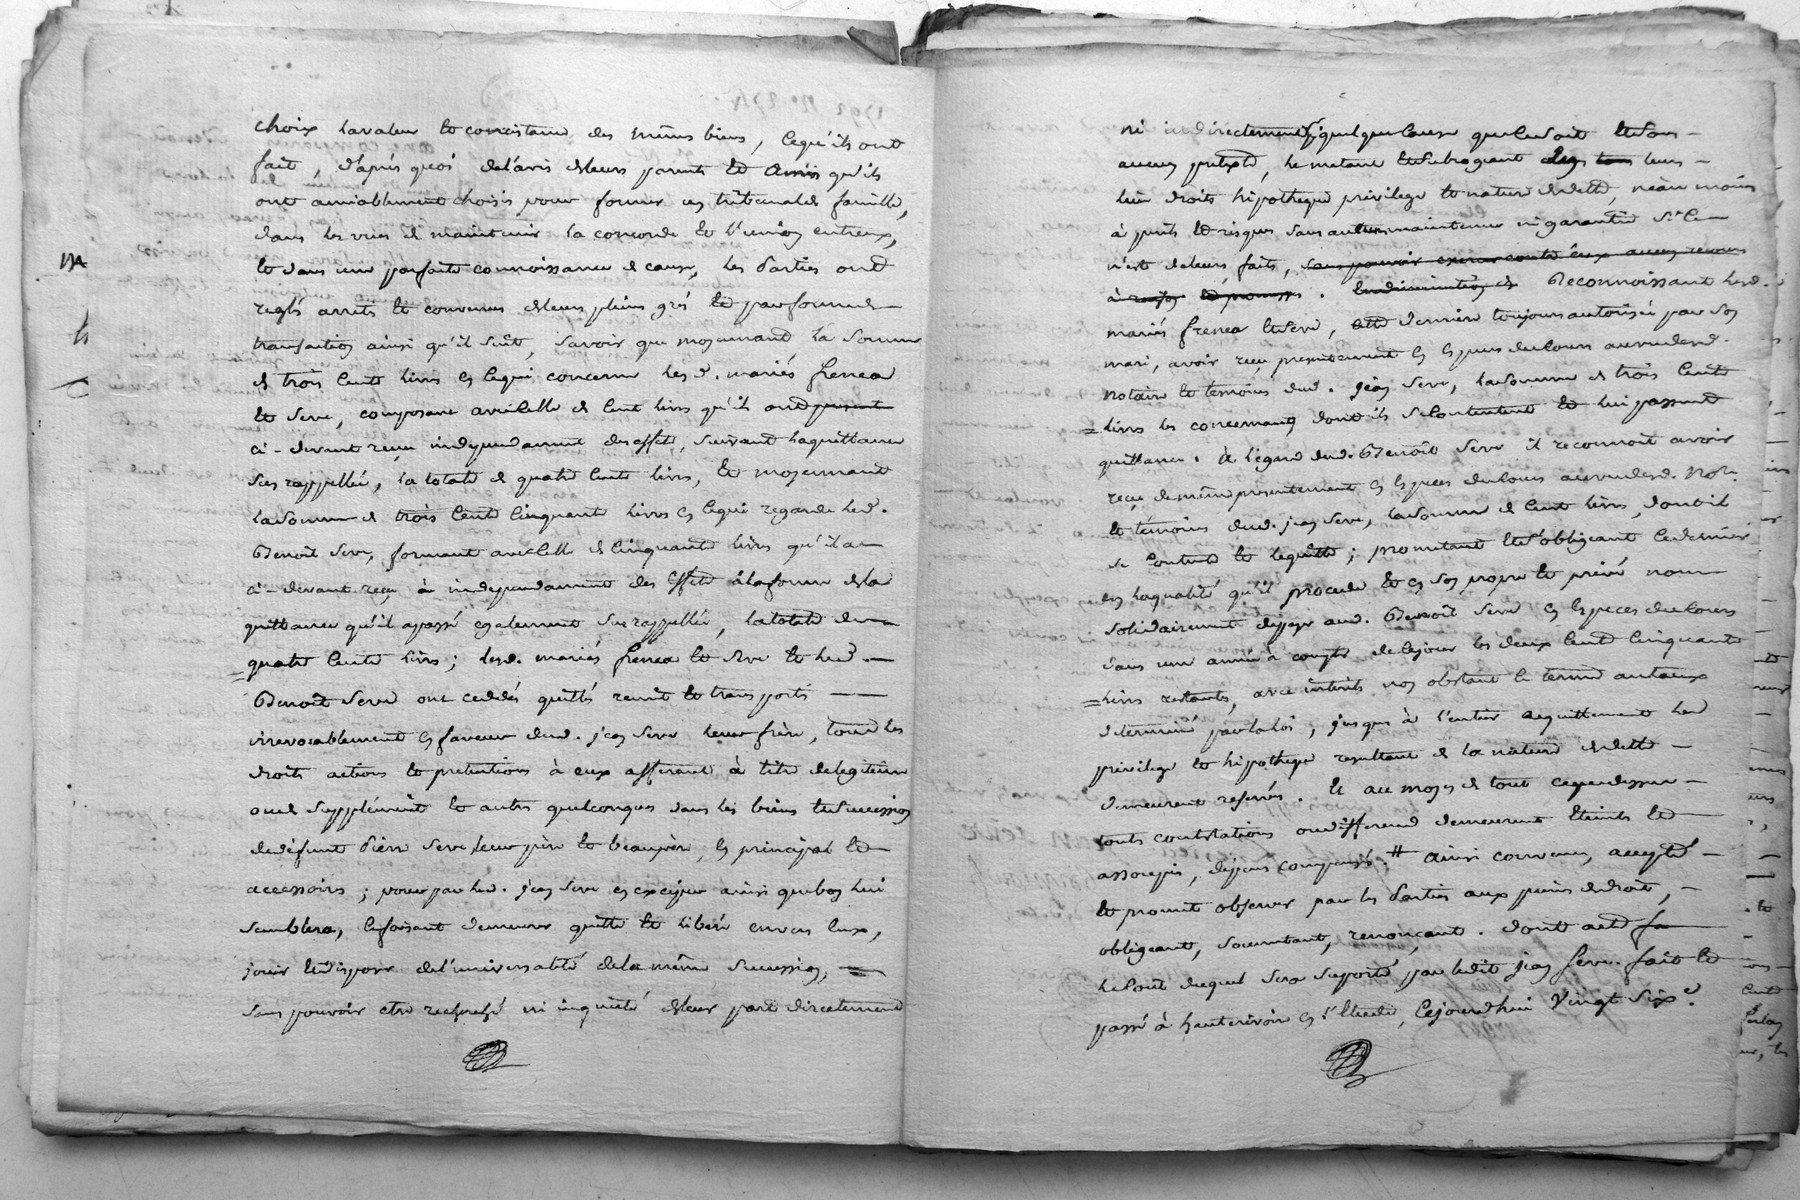 choix la valeur et consistance des mêmes biens, ce qu'ils ont
fait, d'après quoi de l'avis de leurs parents et amis qu'ils
ont amiablement choisis pour former un tribunal de famille,
dans les vues de maintenir la concorde et l'union entreux,
et dans une parfaite connoissance de cause, les parties ont
reglé arreté et convenu de leurs pleins grés et par forme de
transaction ainsi qu'il suit, savoir que moyennant la somme
de trois cents livres en ce qui concerne lesd. mariés frenea
et Serve, composant avec celle de cent livres qu'ils ont
ci-devant reçu independament des effets, suivant la quittance
sus rappellée, la totale de quatre cents livres, et moyennant
la somme de trois cent cinquante livres en ce qui regarde led.
Benoît Serve, formant avec celle de cinquante livres qu'il a
ci-devant reçu independament des effets à la forme de la
quittance qu'il a passé egalement sus rappellée, la totale de
quatre cents livres; lesd. mariés frenea et Serve et led.
Benoît Serve ont ceddés quittés remit et transportés
irrevocablement en faveur dud. jean Serve leur frère, tous les
droits actions et pretentions à eux afferant à titre de legitime
ou de supplément et autres quelconques dans les biens et succession
de défunt Pierre Serve leur père et beaupère, en principal et
accessoirs; pour par led. jean Serve en exciper ainsi que bon lui
semblera, le faisant demeurer quitte et libéré envers eux,
jouir et disposer de l'universalité de la même succession,
sans pouvoir etre recherché ni inquieté de leur part directement
ni indirectement quelque cause que ce soit et sous
aucun pretexte, le metant et subrogeant leurs
lieu droits hipotheque privilege et nature de dette, néan moins
à perils et risques sans autre maintenue ni garantie si ce
n'est de leurs faits, sans pouvoir exercer contre eux aucun recours
à raison de promesses. Reconnoissant lesd.
mariés frenea et Serve, cette derniere toujours autorisée par son
mari, avoir reçu presentement en especes de cours au vu dud.
notaire et temoins dud. jean Serve, la somme de trois cents
livres les concernant dont ils se contentent et lui passent
quittance. à l'égard dud. Benoît Serve il reconnoit avoir
reçu de même presentement en especes de cours au vu desd. Notr.
et temoins dud. jean Serve, la somme de cent livres, dont il
se contente et le quitte; promettant et s'obligeant ce dernier
en la qualité qu'il procede et en son propre et privé nom
solidairement de payer aud. Benoît Serve en especes de cours
dans une année à compter de ce jour les deux cent cinquante
livres restants, avec interets non obstant le terme au taux
determiné par la loi, jusques à l'entier acquittement led.
privilege et hipotheque resultant de la nature de dette
demeurent reservés. Et au moyen de tout ce que dessus
touts contestations ou differend demeurent éteints et
assoupis, depens compensés. # ainsi convenu, accepté
et promit observer par les parties aux peines de droit,
obligeant, soumettant, renonçant. dont acte
le cout duquel sera supporté par ledit jean Serve. fait et
passé à hauterivoire en l'etude, cejourd'hui vingt six.e